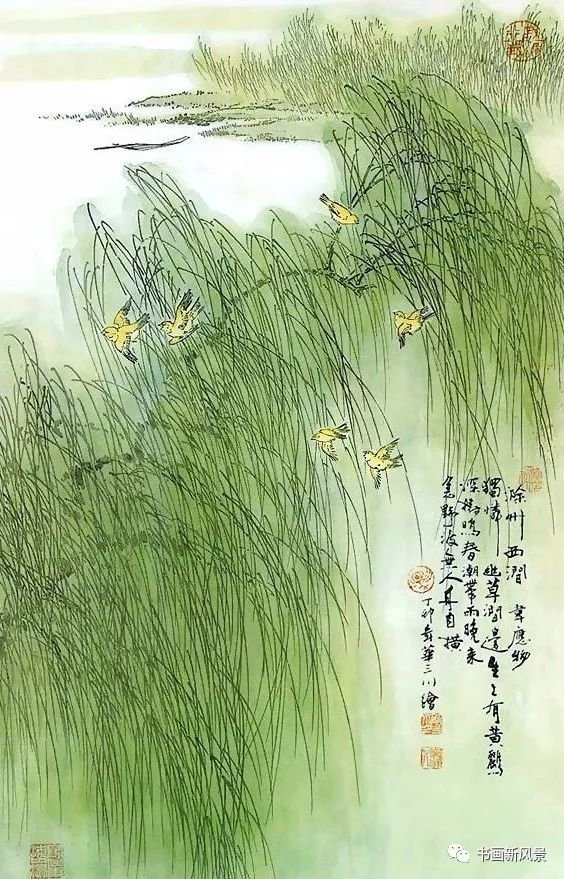 滁州西澗 韋應物
獨憐幽草澗邊生上有黃鸝
深樹鳴春潮帶雨晚來
急野渡無人舟自橫
丁卯年華三川繪
书画新风景